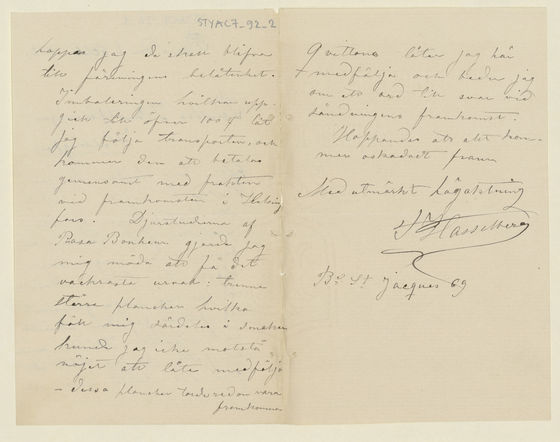 STYAC7_92_2
hoppas jag de skall blifva
till föreningens belåtenhet.
Imballeringen hvilken upp-
gick till öfver 100 f lät
jag följa transporten, och
kommer den att betalas
gemensamt med frakten
vid framkomsten i Helsing
fors. Djurstudierna af
Rosa Bonheur gjorde jag
mig möda att få det
vackraste urval: trenne
större plancher hvilka
föll mig särdeles i smaken
kunde jag icke motstå
nöjet att låta medfölja
– dessa plancher torde redan vara
framkomna
Qvittona låter jag här
medfölja och beder jag
om ett ord till svar vid
sändningens framkomst.
Hoppandes att allt kom-
mer oskadadt fram
Med utmärkt högaktning
Hasselberg
Bd St Jacques 69